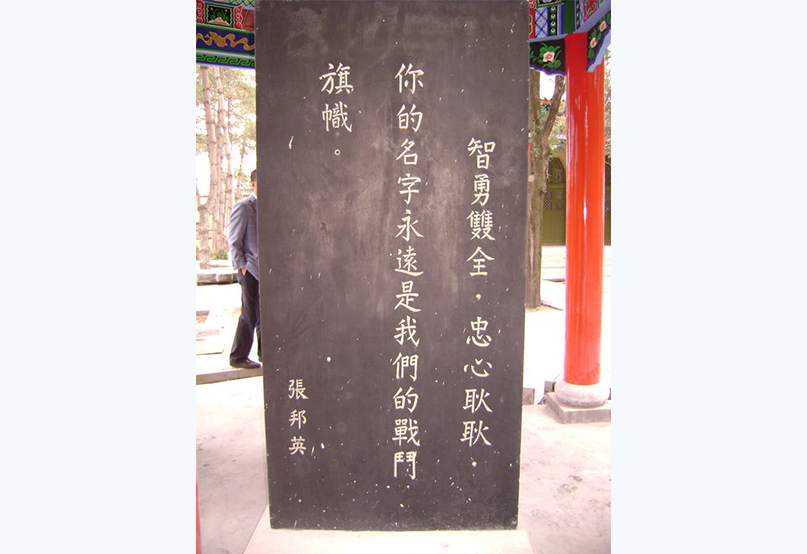 智勇雙全，忠心耿耿，
你的名字永遠是我們的戰鬥
旗幟。
張邦英